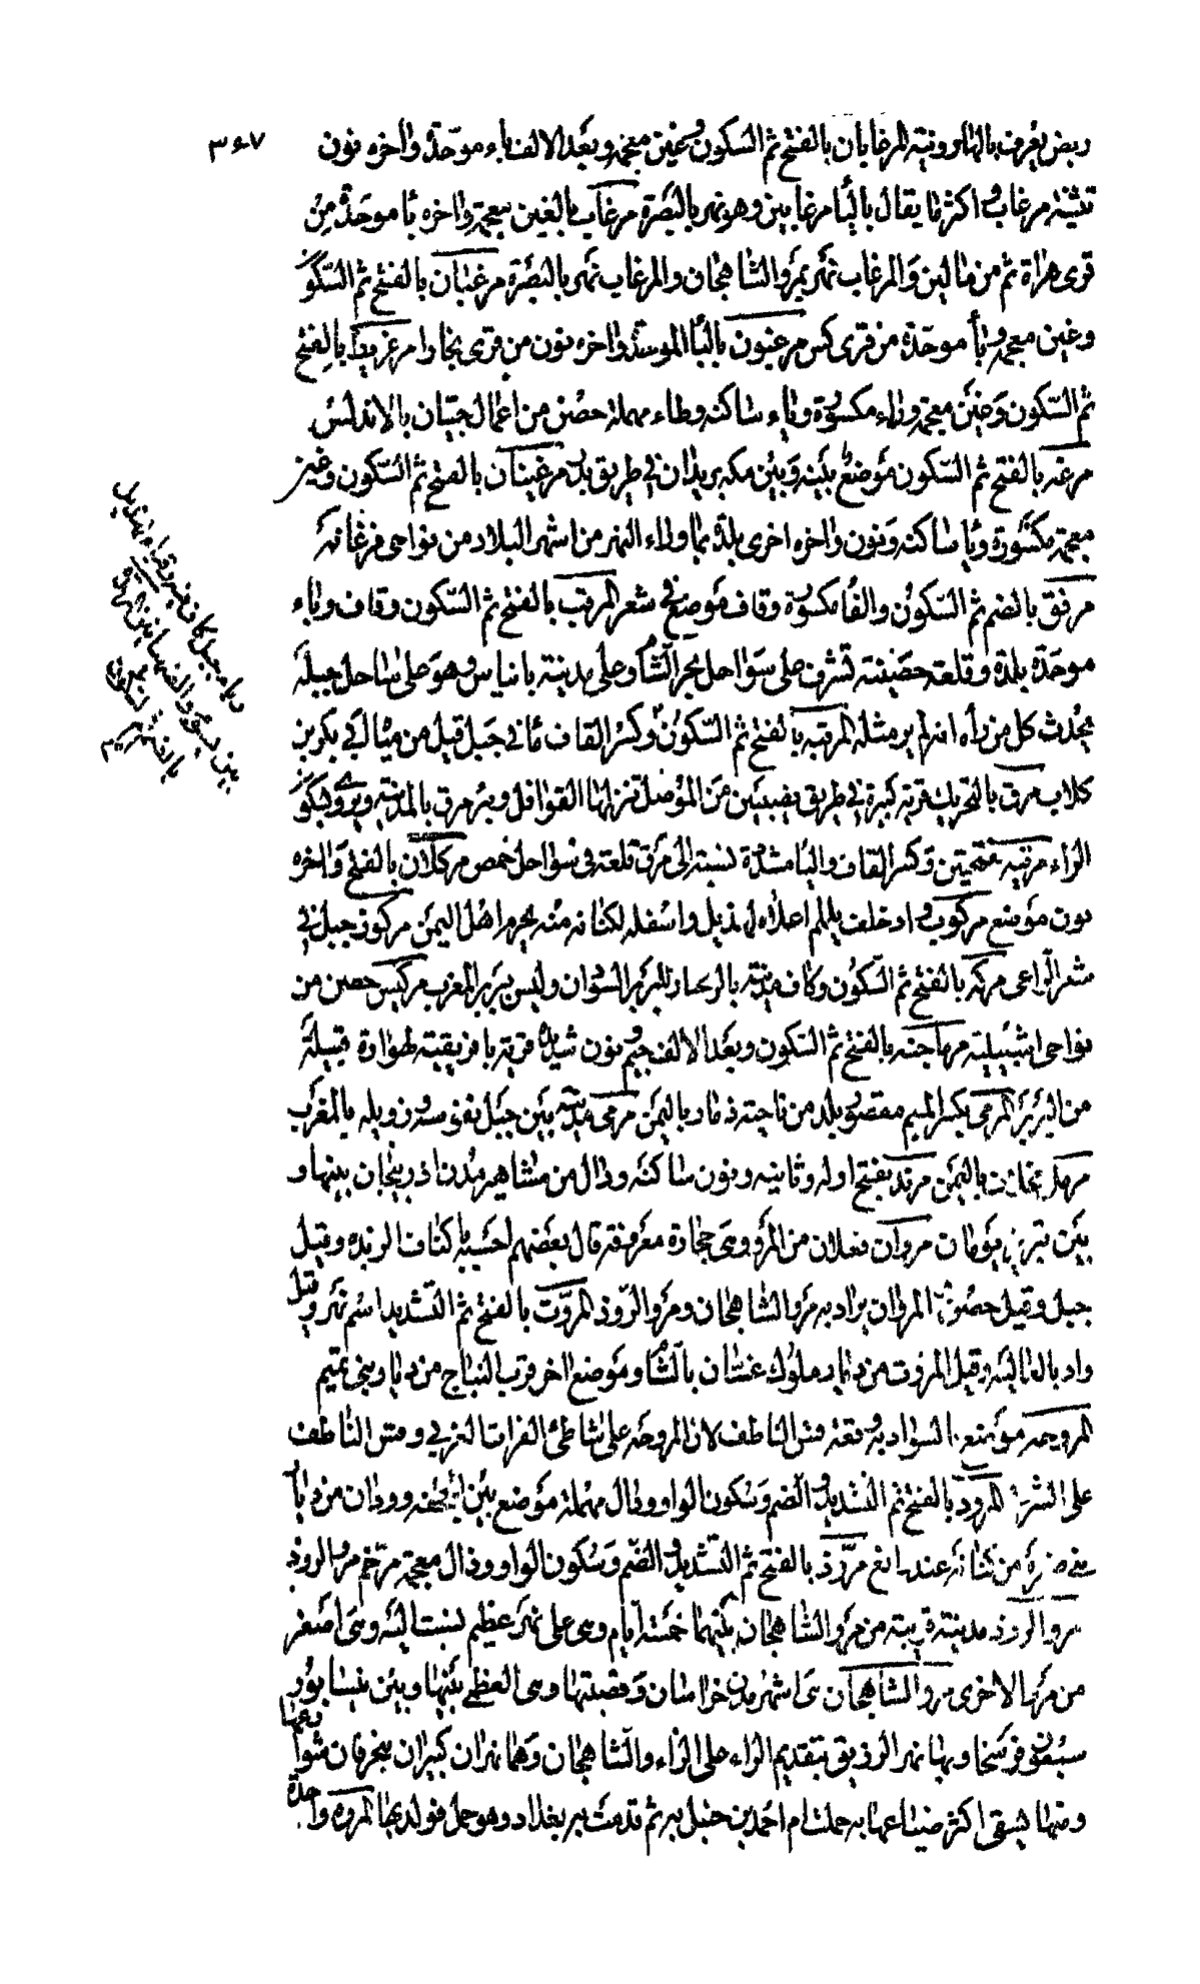 ربض يعرف بالهارونية المرغابان بالفتح ثم السكون وغين معجمة وبعد الالف باء موحدة وآخره نون
تثنية مرغاب واكثر ما يقال بالياء مرغابين وهو نهر بالبصرة مرغاب بالغين معجمة وآخره باء موحدة من
قرى هراة ثم من مالين والمرغاب نهر بمرو الشاهجان والمرغاب نهر بالبصرة مرغبان بالفتح ثم السكون
وغين معجمة وباء موحدة من قرى كس مرغبون بالباء الموحدة وآخره نون من قرى بخارا مرغريطة بالفتح
ثم السكون وغين معجمة وراء مكسورة وياء ساكنة وطاء مهملة حصن من اعمال جيان بالاندلس
مرغه بالفتح ثم السكون موضع بينه وبين مكة بريدان في طريق بدر مرغينان بالفتح ثم السكون وغين
معجمة مكسورة وياء ساكنة ونون وآخره اخرى بلدة بما وراء النهر من اشهر البلاد من نواحى فرغانة
مرفق بالضم ثم السكون والفاء مكسورة وقاف موضع في شعر المرقب بالفتح ثم السكون وقاف وباء
موحدة بلدة وقلعة حصينة تشرف على سواحل بحر الشام وعلى مدينة بانياس وهو على ساحل جبلة
يحدث كل من رآه انه لم ير مثله المرقبة بالفتح ثم السكون وكسر القاف ماء في جبل قيل من مياه ابي بكر بن
كلاب مرق بالتحريك قرية كبيرة في طريق نصيبين من الموصل تنزلها القوافل وبئر مرق بالمدينة ويروى بسكون
الراء مرقية بفتحتين وكسر القاف والياء مشددة نسبة الى مرق قلعة في سواحل حمص مركلان بالفتح وآخره
نون موضع مركوب واد خلف يلملم اعلاه لهذيل واسفله لكنانة منه يحرم اهل اليمن مركوز جبل في
شعر الراعى مركه بالفتح ثم السكون وكاف مدينة بالزنجبار لبربر السودان وليس بربر المغرب مركيس حصن من
نواحى اشبيلية مرماجنه بالفتح ثم السكون وبعد الالف جيم ونون شديدة قرية بافريقية لهوارة قبيلة
من البربر المرمى بكسر الميم مقصور بلد من ناحية ذمار باليمن مرمى مدينة بين جبل نفوسه وزويله بالمغرب
مرمل مخلاف باليمن مرند بفتح اوله وثانيه ونون ساكنة ودال من مشاهير مدن اذربيجان بينها و
بين تبريز يومان مروان فعلان من المرو وهى حجارة معروفة قال بعضهم احسبه باكناف الربذه وقيل
جبل وقيل حصن المروان يراد به مرو الشاهجان ومرو الروذ المروت بالفتح ثم التشديد اسم نهر وقيل
واد بالعالية وقيل المروت من ديار ملوك غسان بالشام وموضع اخر قرب النباج من ديار بني تميم
المروحه موضع بالسواد به وقعة قس الناطف لان المروحه على شاطئ الفرات الغربي وقس الناطف
على الشرقي المرود بالفتح ثم التشديد والضم وسكون الواو ودال مهملة موضع بين الجحفه وودان من ديار
بني ضمرة من كنانة عند رابغ مروذ بالفتح ثم التشديد والضم وسكون الواو وذال معجمة مرخم مرو الروذ
مرو الروذ مدينة قريبة من مرو الشاهجان بينهما خمسة ايام وهى على نهر عظيم نسبت اليه وهى اصغر
من مرو الاخرى مرو الشاهجان هى اشهر مدن خراسان وقصبتها وهى العظمى بينها وبين نيسابور
سبعون فرسخا وبها نهر الرزيق بتقديم الراء على الزاء والشاهجان وهما نهران كبيران يخرقان شوارعها
ومنهما يسقى اكثر ضياعها به حملت ام احمد بن حنبل به ثم قدمت به بغداد وهو حمل فولد بها المروه واحدة